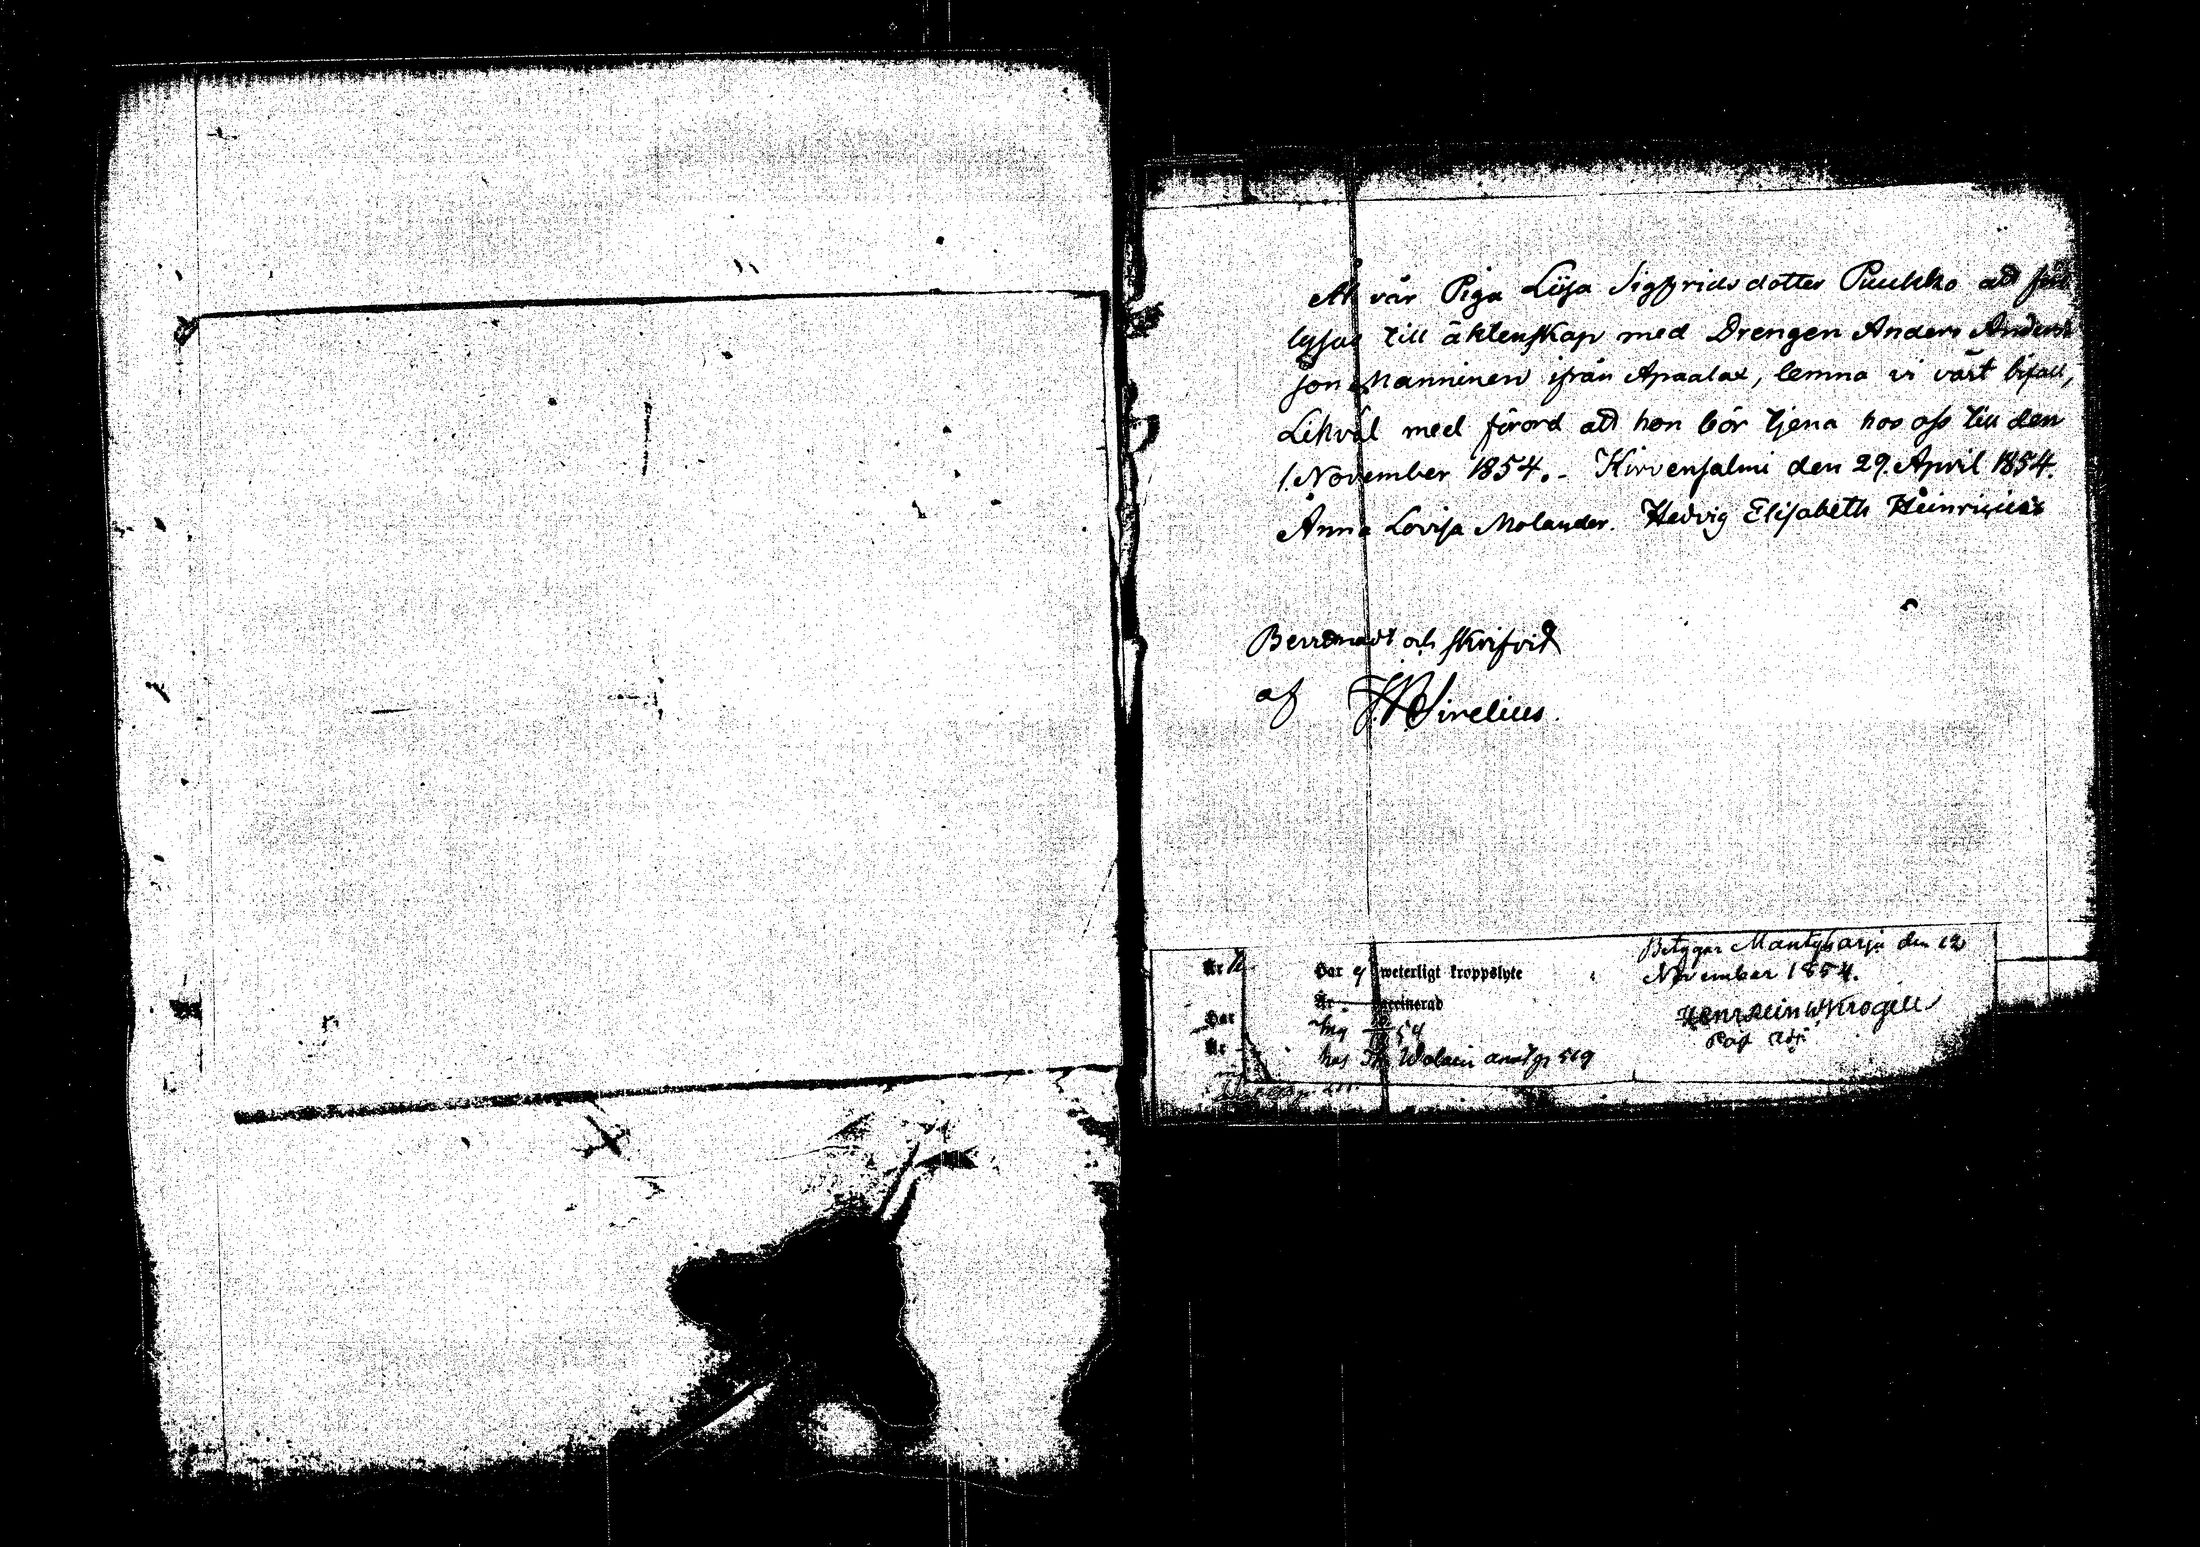 At vår Piga Liisa Sigfridsdotter Puukko att för
lysas till äktenskap med Drengen Anders Anders
son Manninen ifrån Apaalax, lemna vi vårt bifall,
Likväl med förord att hon bör tjena hos oss till den
1. November 1854. - Kirvensalmi den 29. April 1854.
Anna Lovisa Molander. Hedvig Elisabeth Heinricius
och skrifvit
af Sirelius.
Betygar Mäntyharju den 12
November 1854.
Har ej weterligt kroppslyte
Är vaccinerad
Har
Är
hos
519